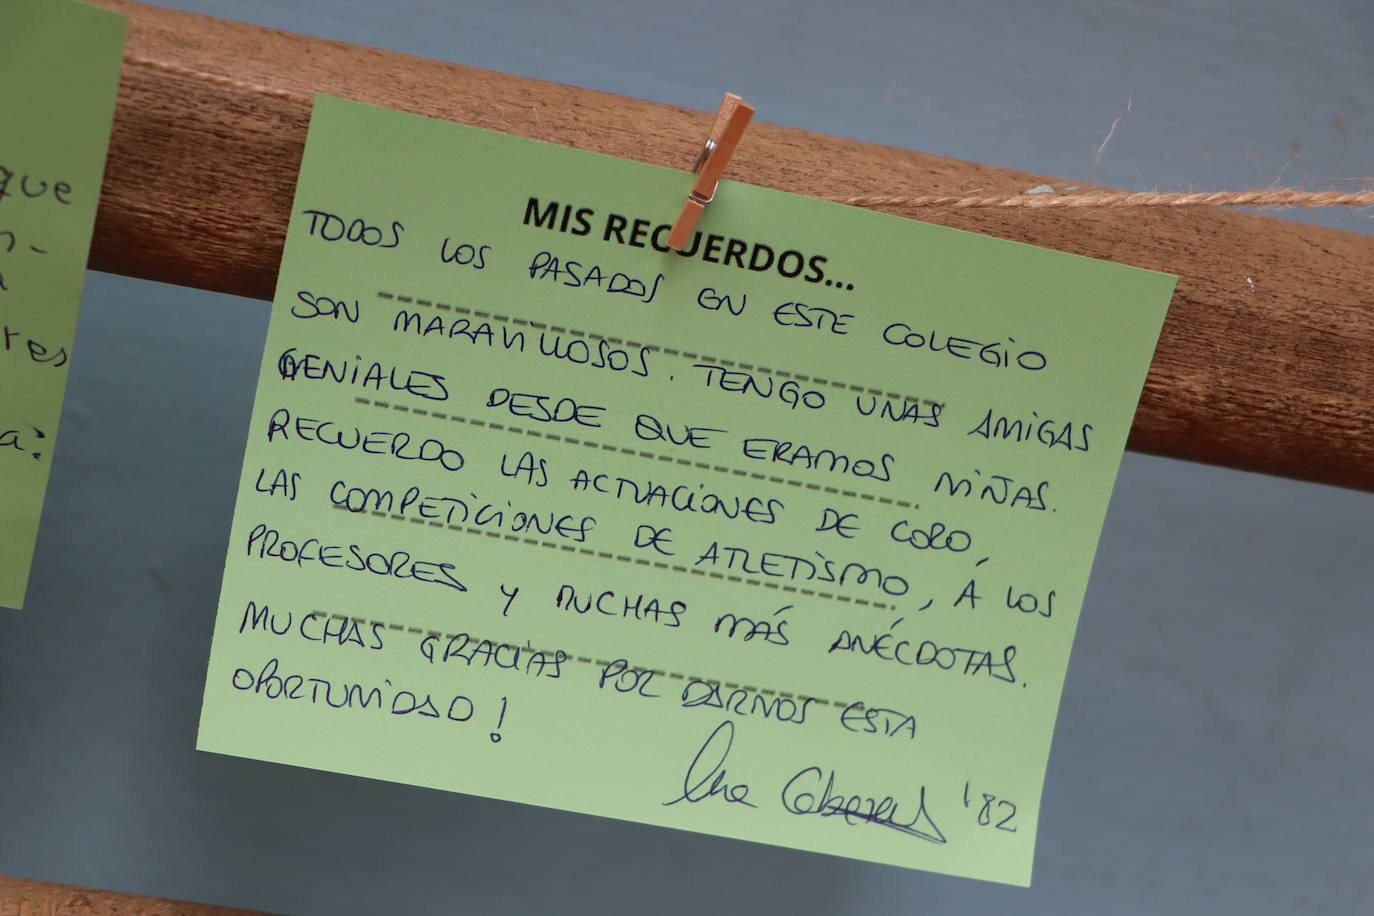 que
n-
res
a?
MIS RECUERDOS...
TODOS LOS PASADOS EN ESTE COLEGIO
SON MARAVILLOSOS. TENGO UNAS AMIGAS
GENIALES DESDE QUE ERAMOS NIÑAS.
RECUERDO LAS ACTUACIONES DE CORO,
LAS COMPETICIONES DE ATLETISMO, A LOS
PROFESORES Y MUCHAS MÁS ANÉCDOTAS.
MUCHAS GRACIAS POR DARNOS ESTA
OPORTUNIDAD!
'82